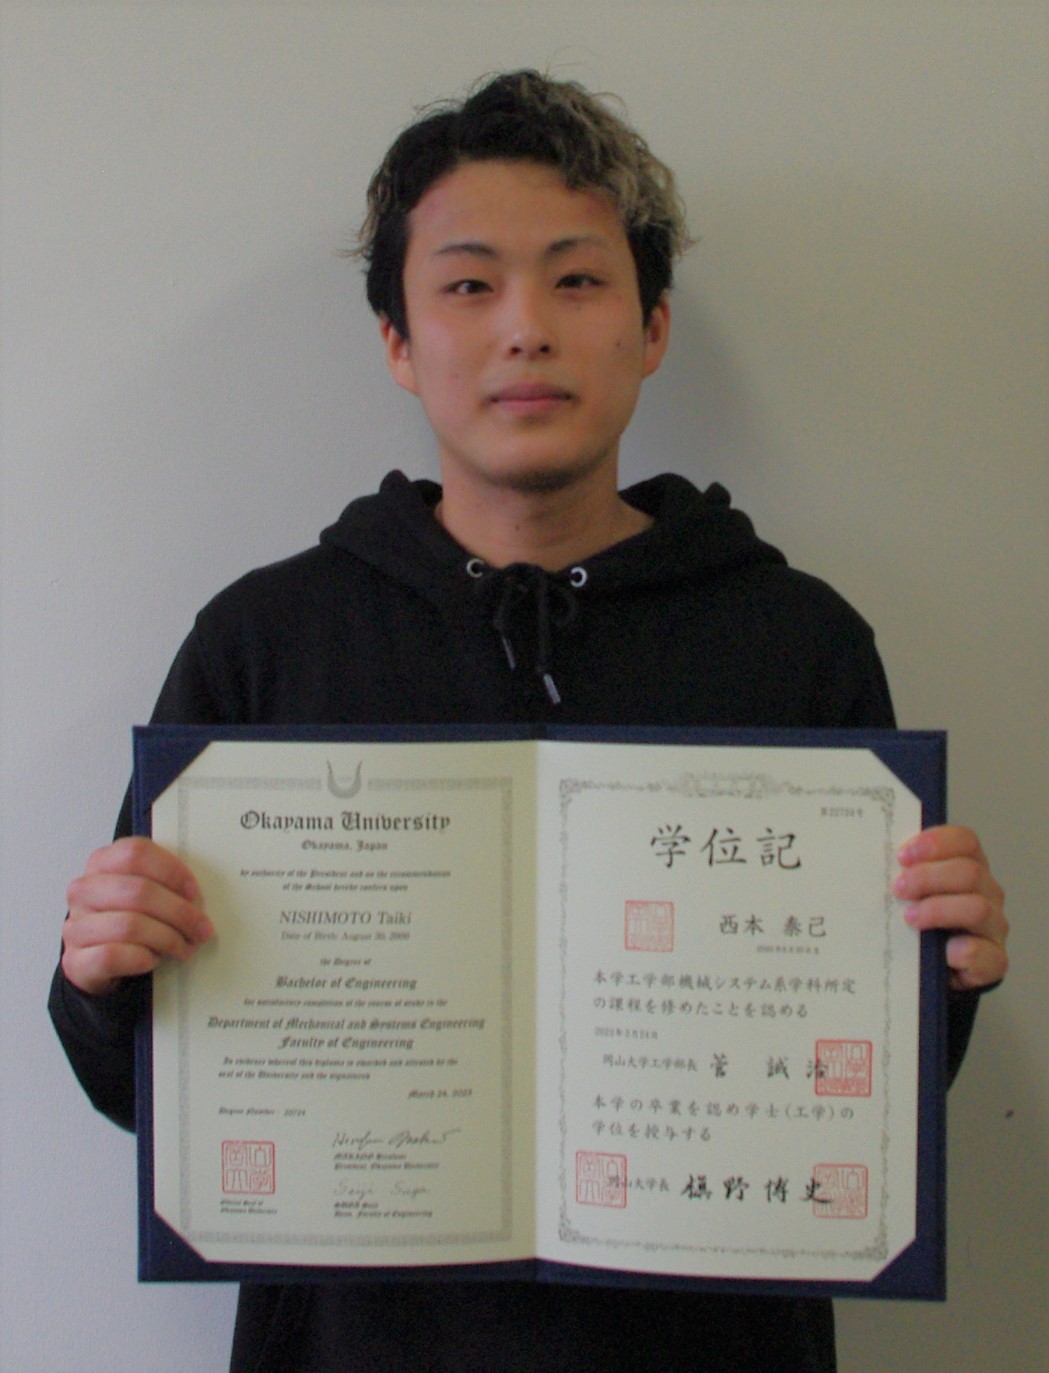 Okayama University
Okayama, Japan
by authority of the President and on the recommendation
of the School hereby confers upon
NISHIMOTO Taiki
Date of Birth: August 30, 2000
the Degree of
Bachelor of Engineering
for satisfactory completion of the course of study in the
Department of Mechanical and Systems Engineering
Faculty of Engineering
In evidence whereof this diploma is awarded and attested by the
seal of the University and the signatures
March 24, 2023
Degree Number : 22724
MAKINO Hirofumi
President, Okayama University
Official Seal of
Okayama University
Seiji Suga
SUGA Seiji
Dean, Faculty of Engineering
第22724号
学位記
西本 泰己
本学工学部機械システム系学科所定
の課程を修めたことを認める
2023年3月24日
岡山大学工学部長 菅 誠治
本学の卒業を認め学士(工学)の
学位を授与する
岡山大学長 槇野博史